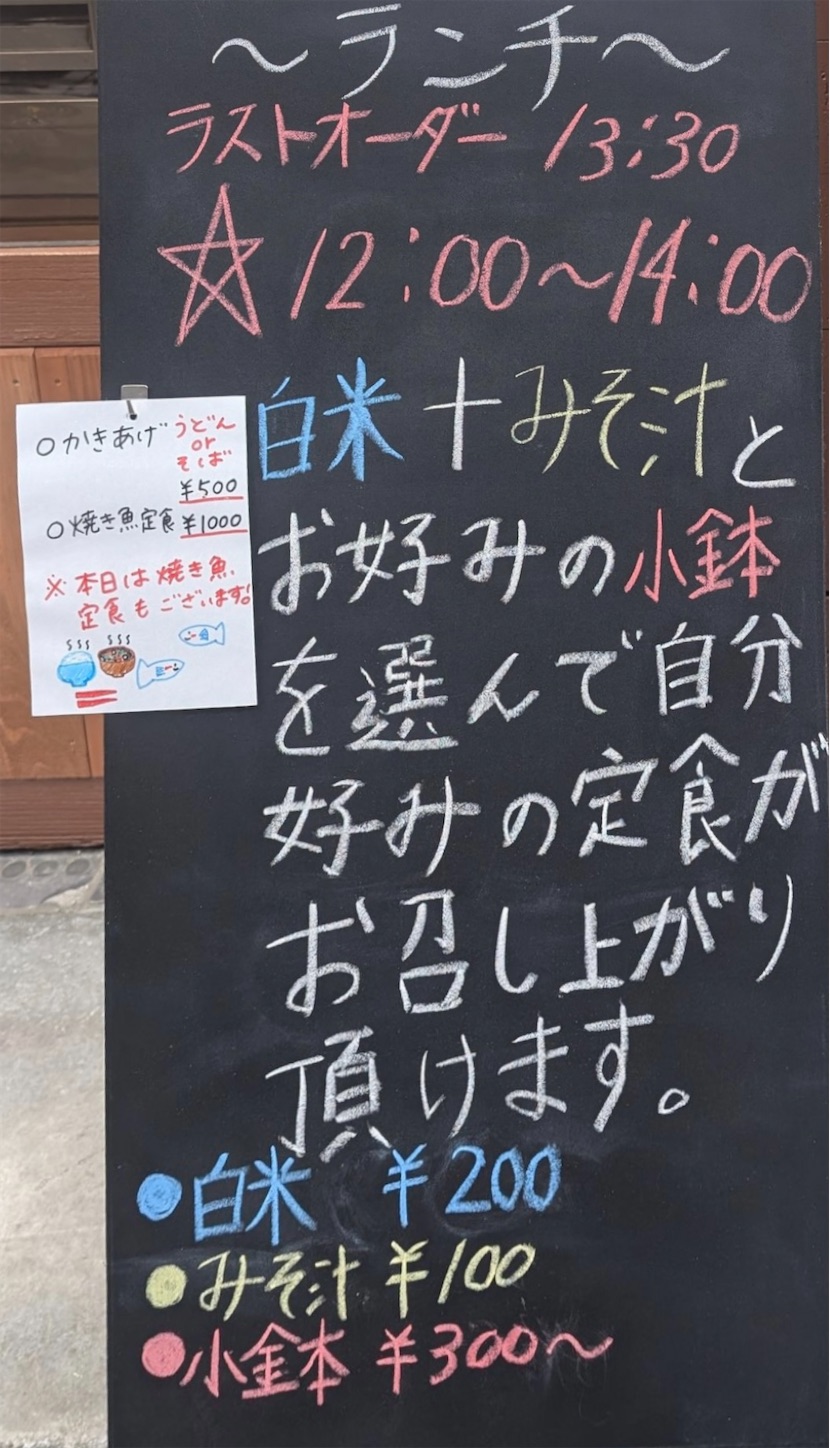 ～ランチ～
ラストオーダー 13:30
☆12:00～14:00
白米+みそ汁と
お好みの小鉢
を選んで自分
好みの定食が
お召し上がり
頂けます。
●白米 ¥200
●みそ汁 ¥100
●小鉢 ¥300～
○かきあげ うどん
or
そば
¥500
○焼き魚定食 ¥1000
※本日は焼き魚
定食もございます!